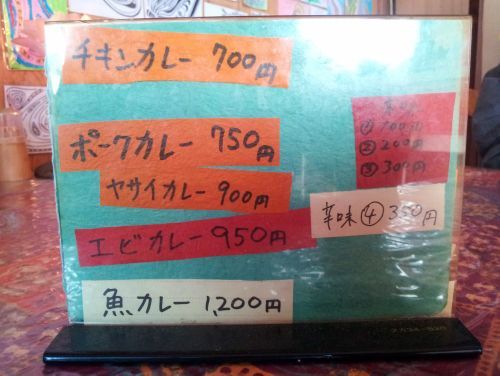 チキンカレー 700円
ポークカレー 750円
ヤサイカレー 900円
エビカレー 950円
魚カレー 1,200円
① 100円
② 200円
③ 300円
辛味 ④ 350円